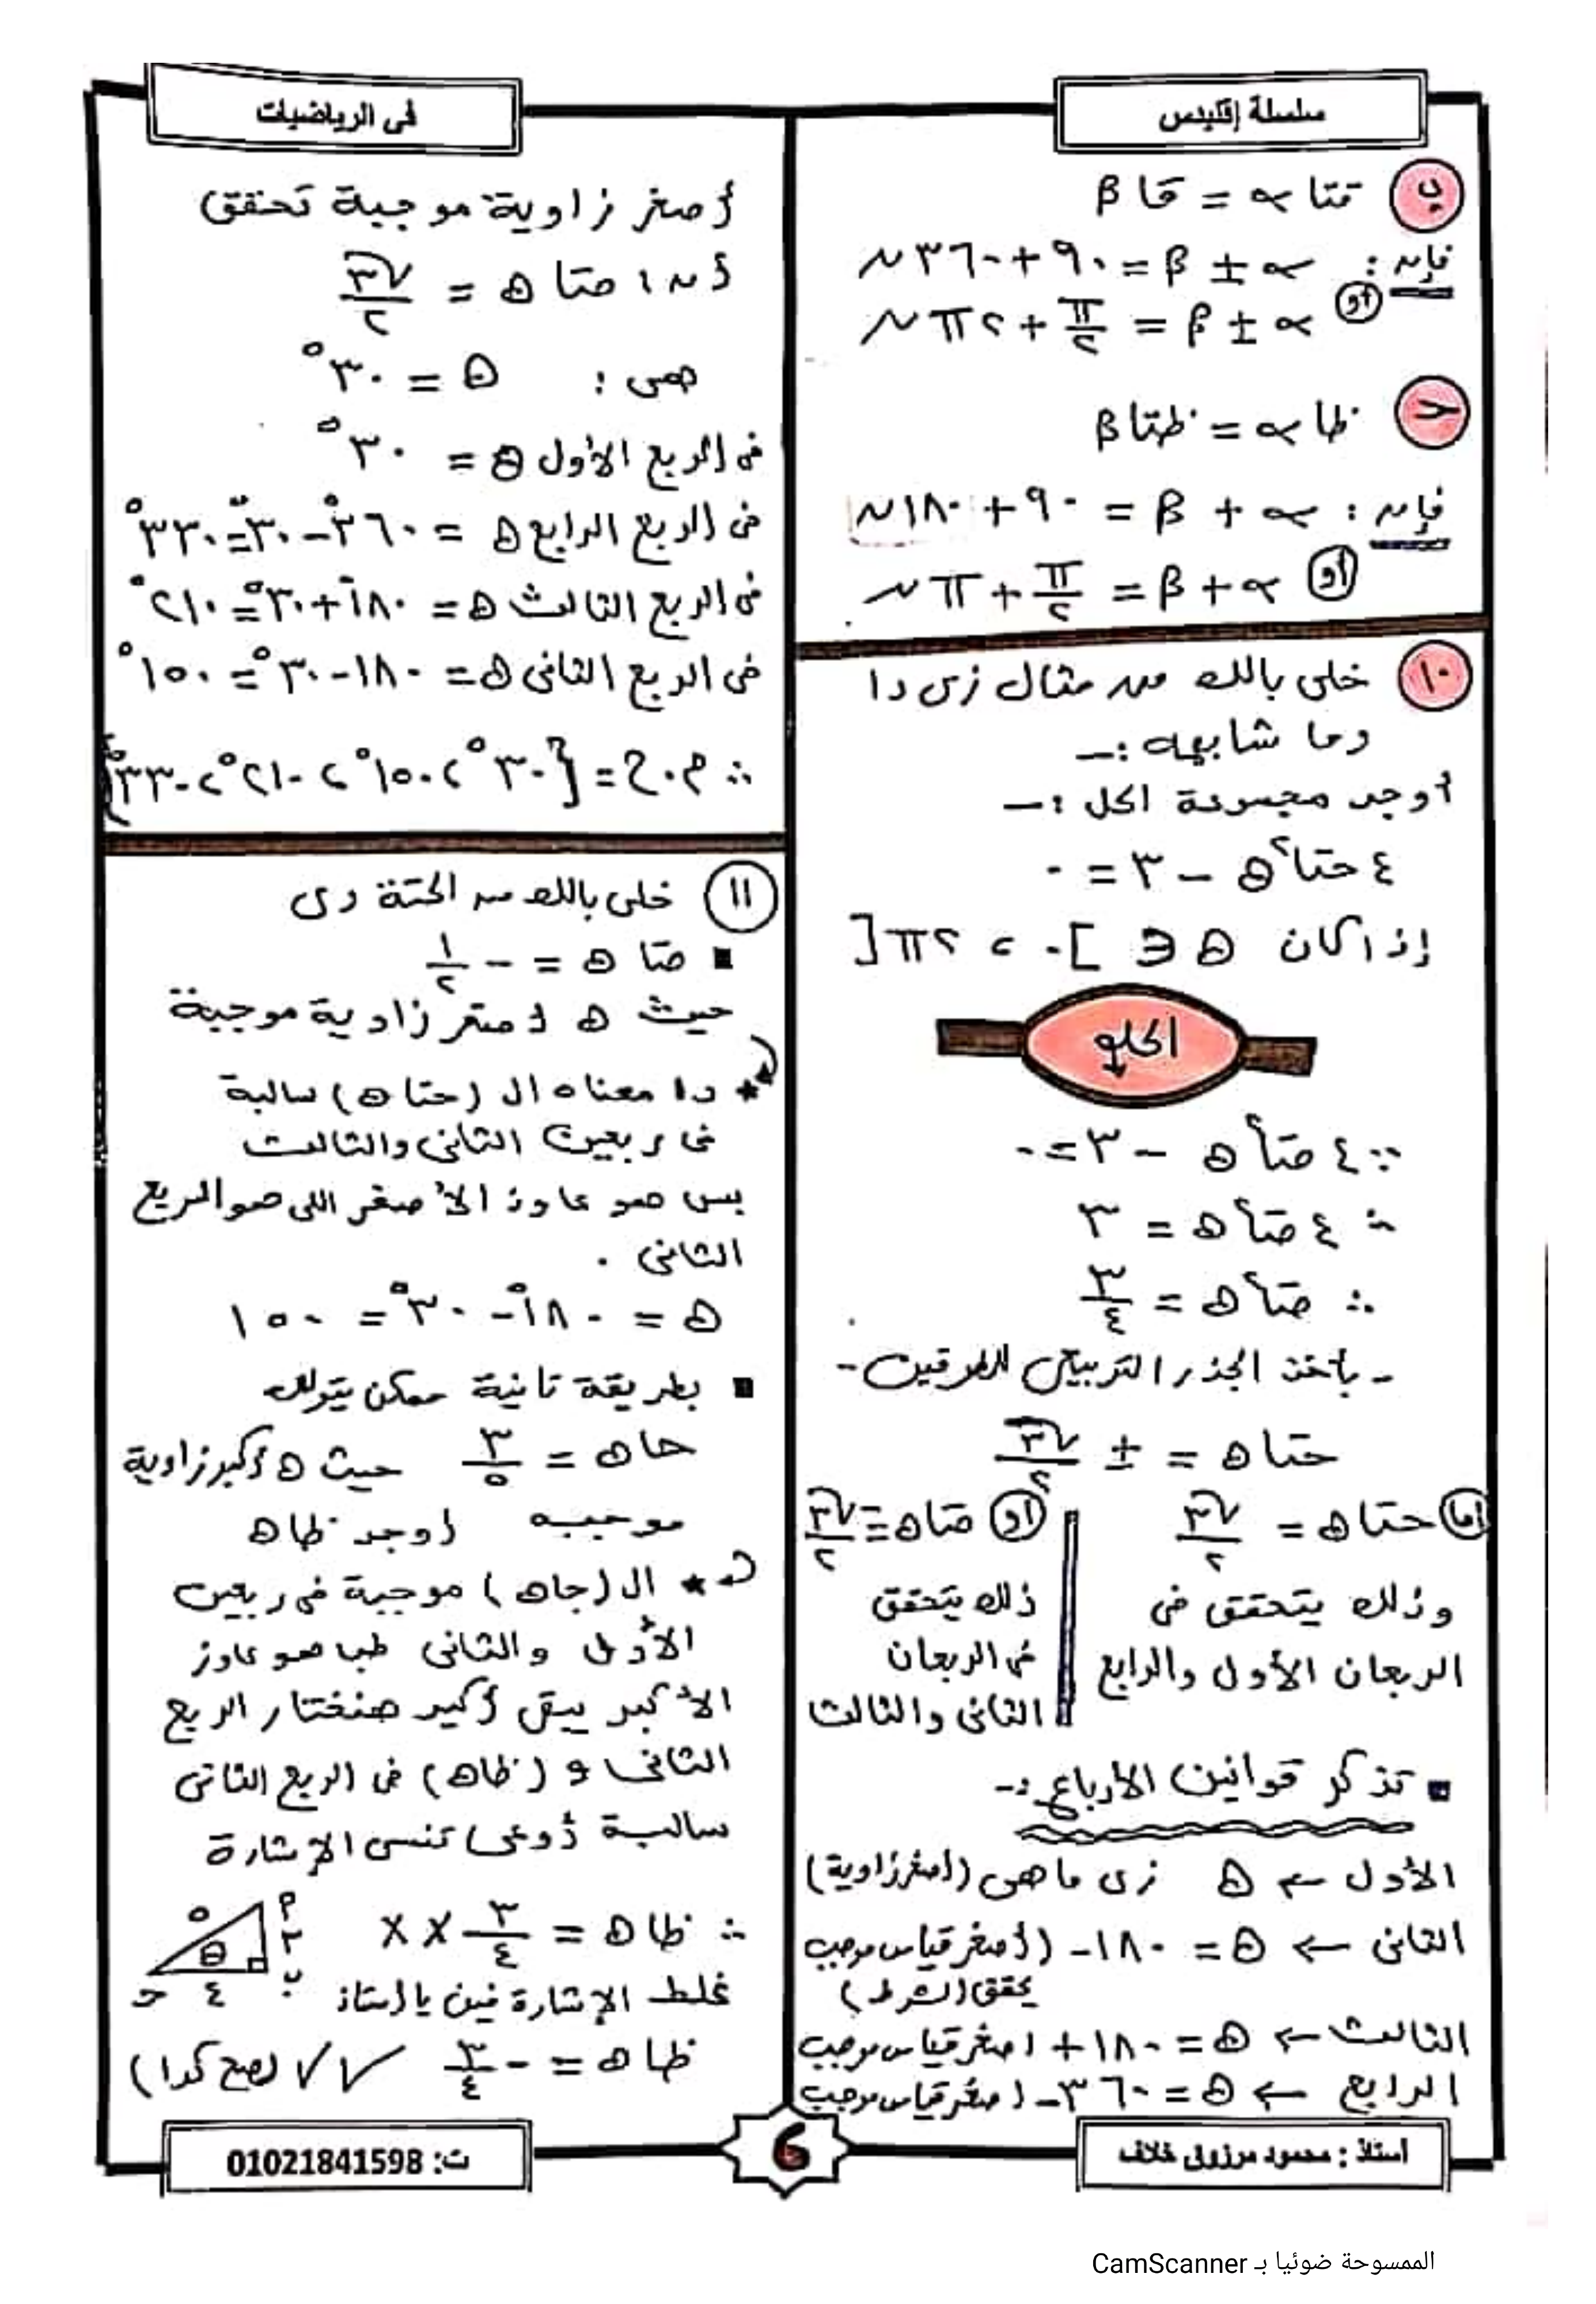 سلسلة إقليدس
فى الرياضيات
ب قتا α = قا β
فإن : α ± β = ٩٠ + ٣٦٠ ن
أو α ± β = π/٢ + ٢π ن
ج ظا α = ظتا β
فإن : α + β = ٩٠ + ١٨٠ ن
أو α + β = π/٢ + π ن
١٠ خلى بالك من مثال زى دا
وما شابهه :ـ
أوجد مجموعة الحل :ـ
٤ حتا²ه − ٣ = ٠
إذا كان ه ∈ ]٠ ، ٢π[
الحلو
∵ ٤ حتا²ه − ٣ = ٠
∴ ٤ حتا²ه = ٣
∴ حتا²ه = ٣/٤
- باخذ الجذر التربيعى للطرفين -
حتا ه = ± √٣/٢
إما حتا ه = √٣/٢
وذلك يتحقق فى
الربعان الأول والرابع
أو حتا ه = −√٣/٢
ذلك يتحقق
فى الربعان
الثانى والثالث
■ تذكر قوانين الأرباع :-
الأول ← ه زى ما هى (أصغر زاوية)
الثانى ← ه = ١٨٠ − (أصغر قياس موجب
يحقق الشرط)
الثالث ← ه = ١٨٠ + أصغر قياس موجب
الرابع ← ه = ٣٦٠ − أصغر قياس موجب
أصغر زاوية موجبة تحقق
أن : حتا ه = √٣/٢
هى : ه = ٣٠°
فى الربع الأول ه = ٣٠°
فى الربع الرابع ه = ٣٦٠° − ٣٠° = ٣٣٠°
فى الربع الثالث ه = ١٨٠° + ٣٠° = ٢١٠°
فى الربع الثانى ه = ١٨٠ − ٣٠° = ١٥٠°
∴ م.ح = {٣٠° ، ١٥٠° ، ٢١٠° ، ٣٣٠°}
١١ خلى بالك من الحتة دى
■ حتا ه = − ١/٢
حيث ه أصغر زاوية موجبة
★ دا معناه ال (حتا ه) سالبة
فى ربعين الثانى والثالث
بس هو عاوز الأصغر اللى هو الربع
الثانى .
ه = ١٨٠° − ٣٠° = ١٥٠
■ بطريقة تانية ممكن يقولك
حا ه = ٣/٥ حيث ه أكبر زاوية
موجبه أوجد ظا ه
★ ال (جا ه) موجبة فى ربعين
الأول والثانى طب هو عاوز
الأكبر يبقى أكيد هنختار الربع
الثانى و (ظا ه) فى الربع الثانى
سالبة أوعى تنسى الإشارة
∴ ظا ه = ٣/٤ X X
م ٥ ٣ θ ب ٤ ح
غلط الإشارة فين يا أستاذ
ظا ه = − ٣/٤ ✓✓ (صح كدا)
أستاذ : محمود مرزوق خلاف
6
ت: 01021841598
الممسوحة ضوئيا بـ CamScanner